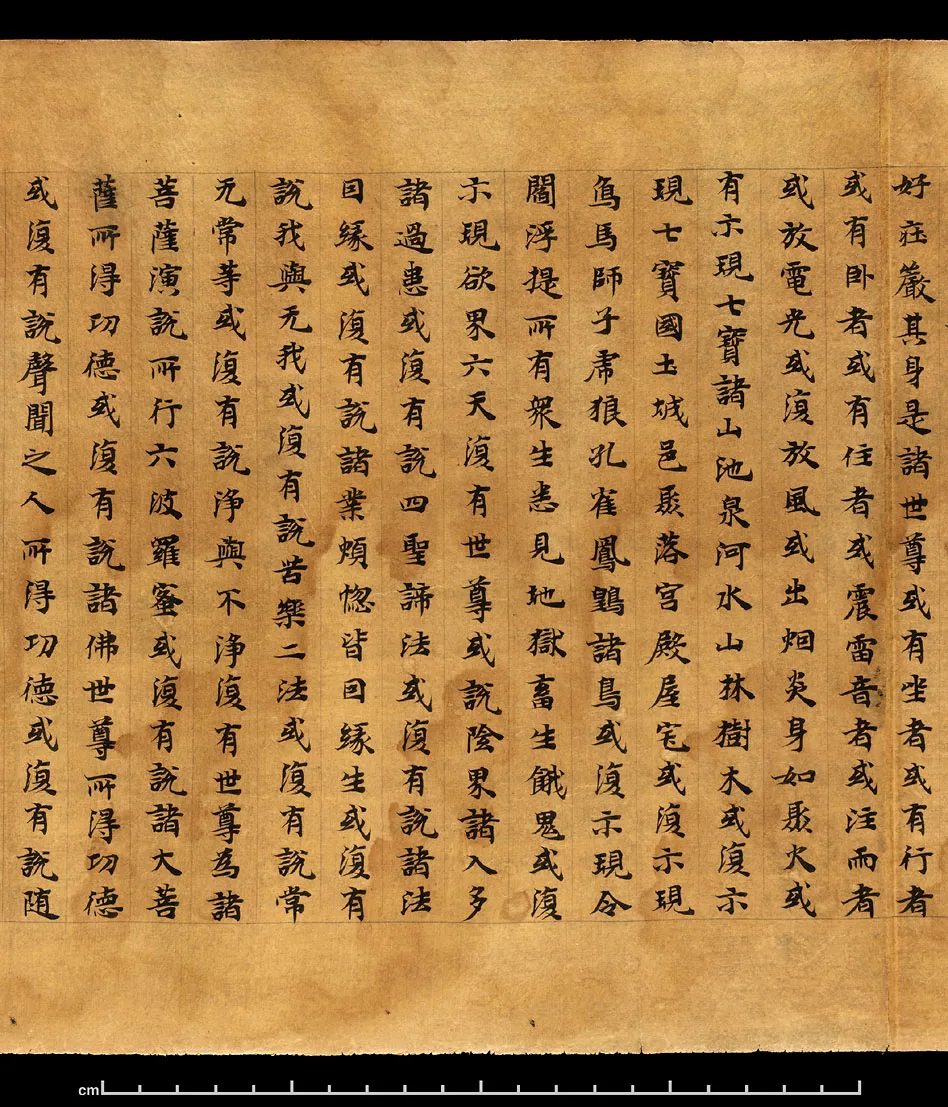 好庄嚴其身是諸世尊或有坐者或有行者
或有卧者或有住者或震雷音者或注雨者
或放電光或復放風或出烟炎身如聚火或
有示現七寶諸山池泉河水山林樹木或復示
現七寶國土城邑聚落宮殿屋宅或復示現
鳥馬師子虎狼孔雀鳳鶤諸鳥或復示現令
閻浮提所有衆生悉見地獄畜生餓鬼或復
示現欲界六天復有世尊或說陰界諸入多
諸過患或復有說四聖諦法或復有說諸法
因緣或復有說諸業煩惱皆因緣生或復有
說我與无我或復有說苦樂二法或復有說常
无常等或復有說淨與不淨復有世尊為諸
菩薩演說所行六波羅蜜或復有說諸大菩
薩所得功德或復有說諸佛世尊所得功德
或復有說聲聞之人所得功德或復有說随
cm